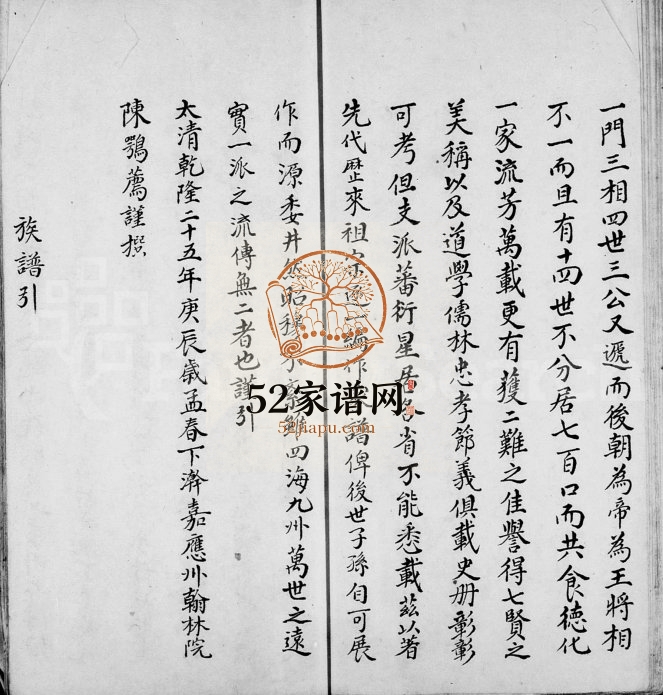 一門三相四世三公又遞而後朝為帝為王將相
不一而且有十四世不分居七百口而共食德化
一家流芳萬載更有獲二難之佳譽得七賢之
美稱以及道學儒林忠孝節義俱載史册彰彰
可考但支派蕃衍星居各省不能悉載茲以著
先代歷來祖宗逐一繪作譜俾後世子孫自可展
作而源委井然昭穆不紊雖四海九州萬世之遠
實一派之流傳無二者也謹引
太清乾隆二十五年庚辰歲孟春下澣嘉應州翰林院
陳鶚薦謹撰
族譜引
52家谱网
52jiapu.com